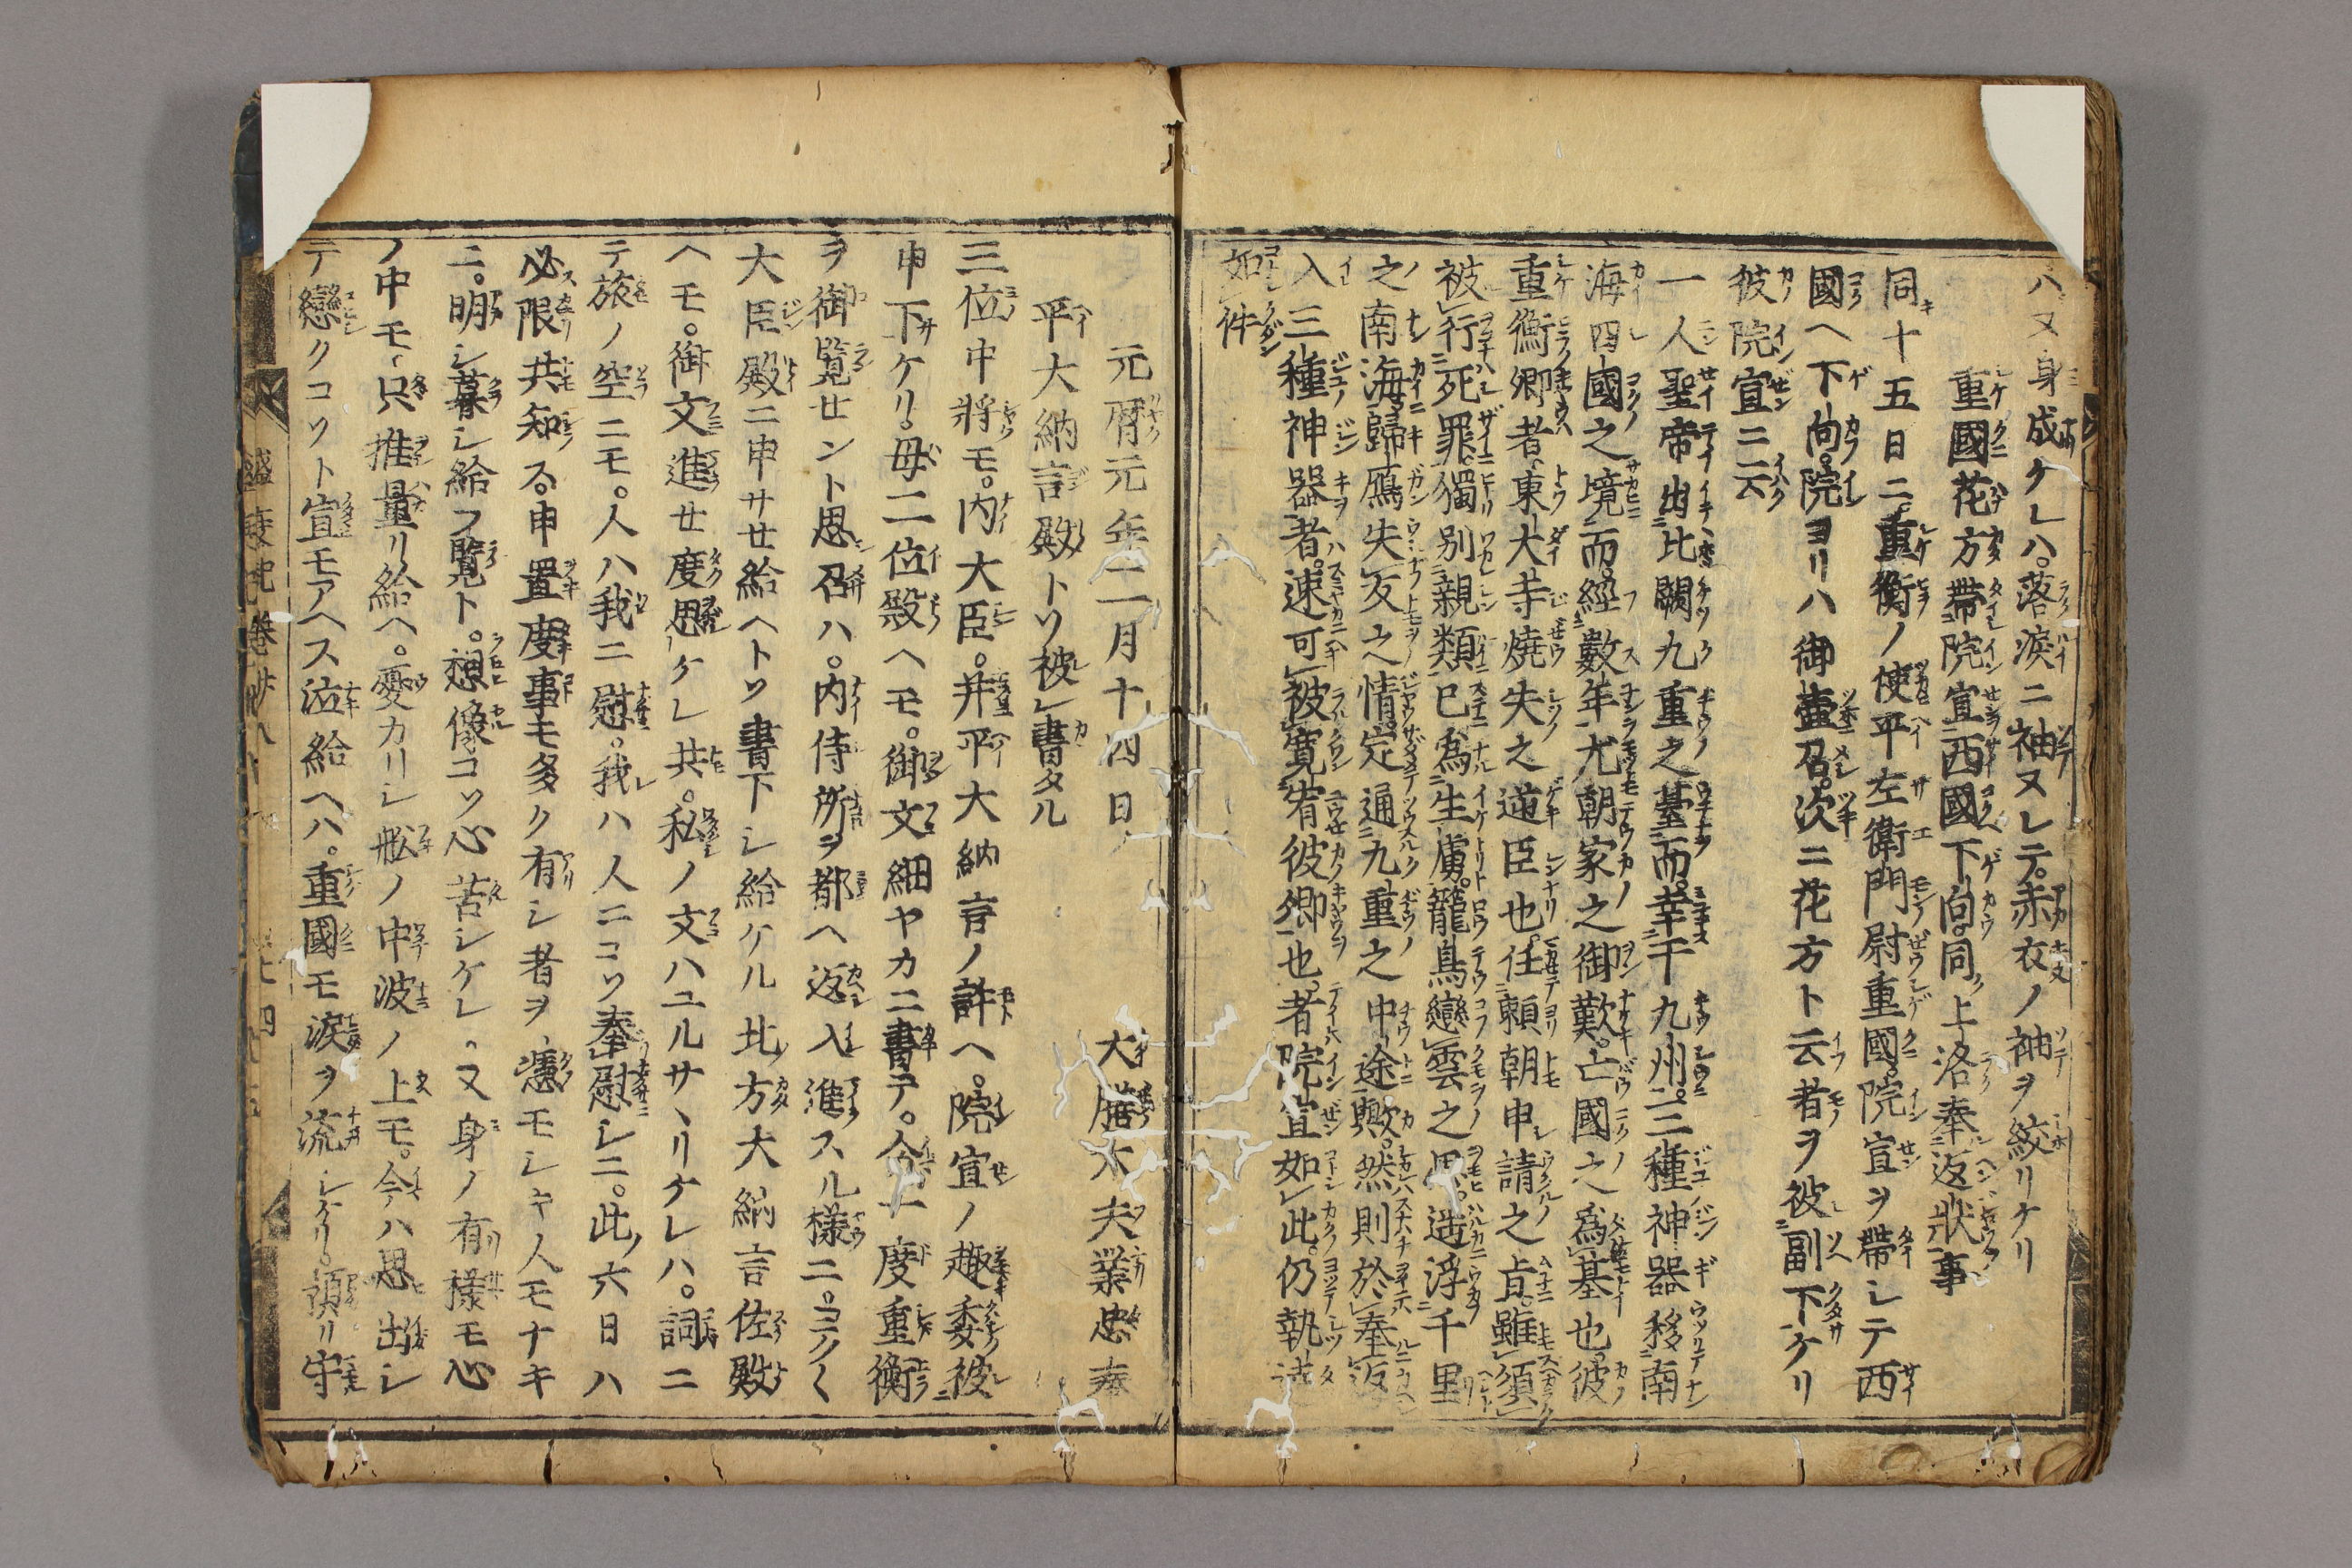 ハ又身成ケレハ。落涙ニ袖ヌレテ。赤衣ノ袖ヲ絞リケリ
重國花方帶院宣西國下向。同上洛奉返狀事
同十五日ニ。重衡ノ使平左衛門尉重國。院宣ヲ帶シテ西
國ヘ下向。院ヨリハ御壷召次ニ花方ト云者ヲ彼副下ケリ
彼院宣ニ云
一人聖帝出北闕九重之臺而。幸于九州。三種神器移南
海四國之境而。經數年尤朝家之御歎。亡國之爲基也彼
重衡卿者、東大寺燒失之逆臣也。任頼朝申請之旨。雖須
被行死罪。獨別親類已爲生虜。籠鳥戀雲之思。遥浮千里
之南海。歸鴈失友之情。定通九重之中途歟。然則於奉返
入三種神器者。速可被寛宥彼卿也。者院宣如此。仍執達
如件
元暦元年二月十四日
大膳大夫業忠奉
平大納言殿トソ被書タル
三位中將モ。内大臣。并平大納言ノ許ヘ。院宣ノ趣委被
申下ケリ。母二位殿ヘモ。御文細ヤカニ書テ。今一度重衡
ヲ御覧セント思召ハ。内侍所ヲ都ヘ返入進スル樣ニ。ヨク〱
大臣殿ニ申サセ給ヘトソ書下シ給ケル北方大納言佐殿
ヘモ。御文進セ度思ケレ共。私ノ文ハユルサヽリケレハ。詞ニ
テ旅ノ空ニモ。人ハ我ニ慰。我ハ人ニコソ奉慰シニ。此六日ハ
必限共知ス。申置度事モ多ク有シ者ヲ、憑モシキ人モナキ
ニ。明シ暮シ給フ覧ト。想像コソ心苦シケレ、又身ノ有樣モ心
ノ中モ、只推量リ給ヘ。憂カリシ舩ノ中波ノ上モ。今ハ思出シ
テ戀クコソト宣モアヘス泣給ヘハ。重國モ涙ヲ流シケリ。預リ守